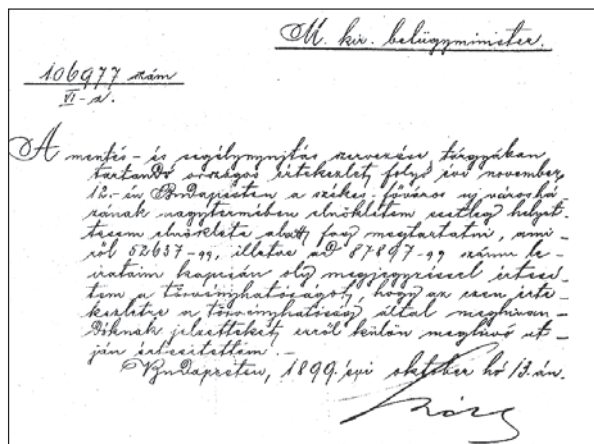 M. kir. belügyminister.
106977 szám
VI-a.
A mentés- és segélynyujtás szervezése tárgyában
tartandó országos értekezlet folyó évi november
12.-én Budapesten a székes-főváros uj városhá-
zának nagytermében elnökletem esetleg helyet-
tesem elnöklete alatt fog megtartatni, ami-
ről 52637-99, illetve ad 87897-99 számu le-
irataim kapcsán oly megjegyzéssel értesi-
tem a törvényhatóságot, hogy az ezen érte-
kezletre a törvényhatóság által meghivan-
dóknak jelzetteket, erről külön meghivó ut-
ján értesitettem.-
Budapesten, 1899. évi október hó 13.án.